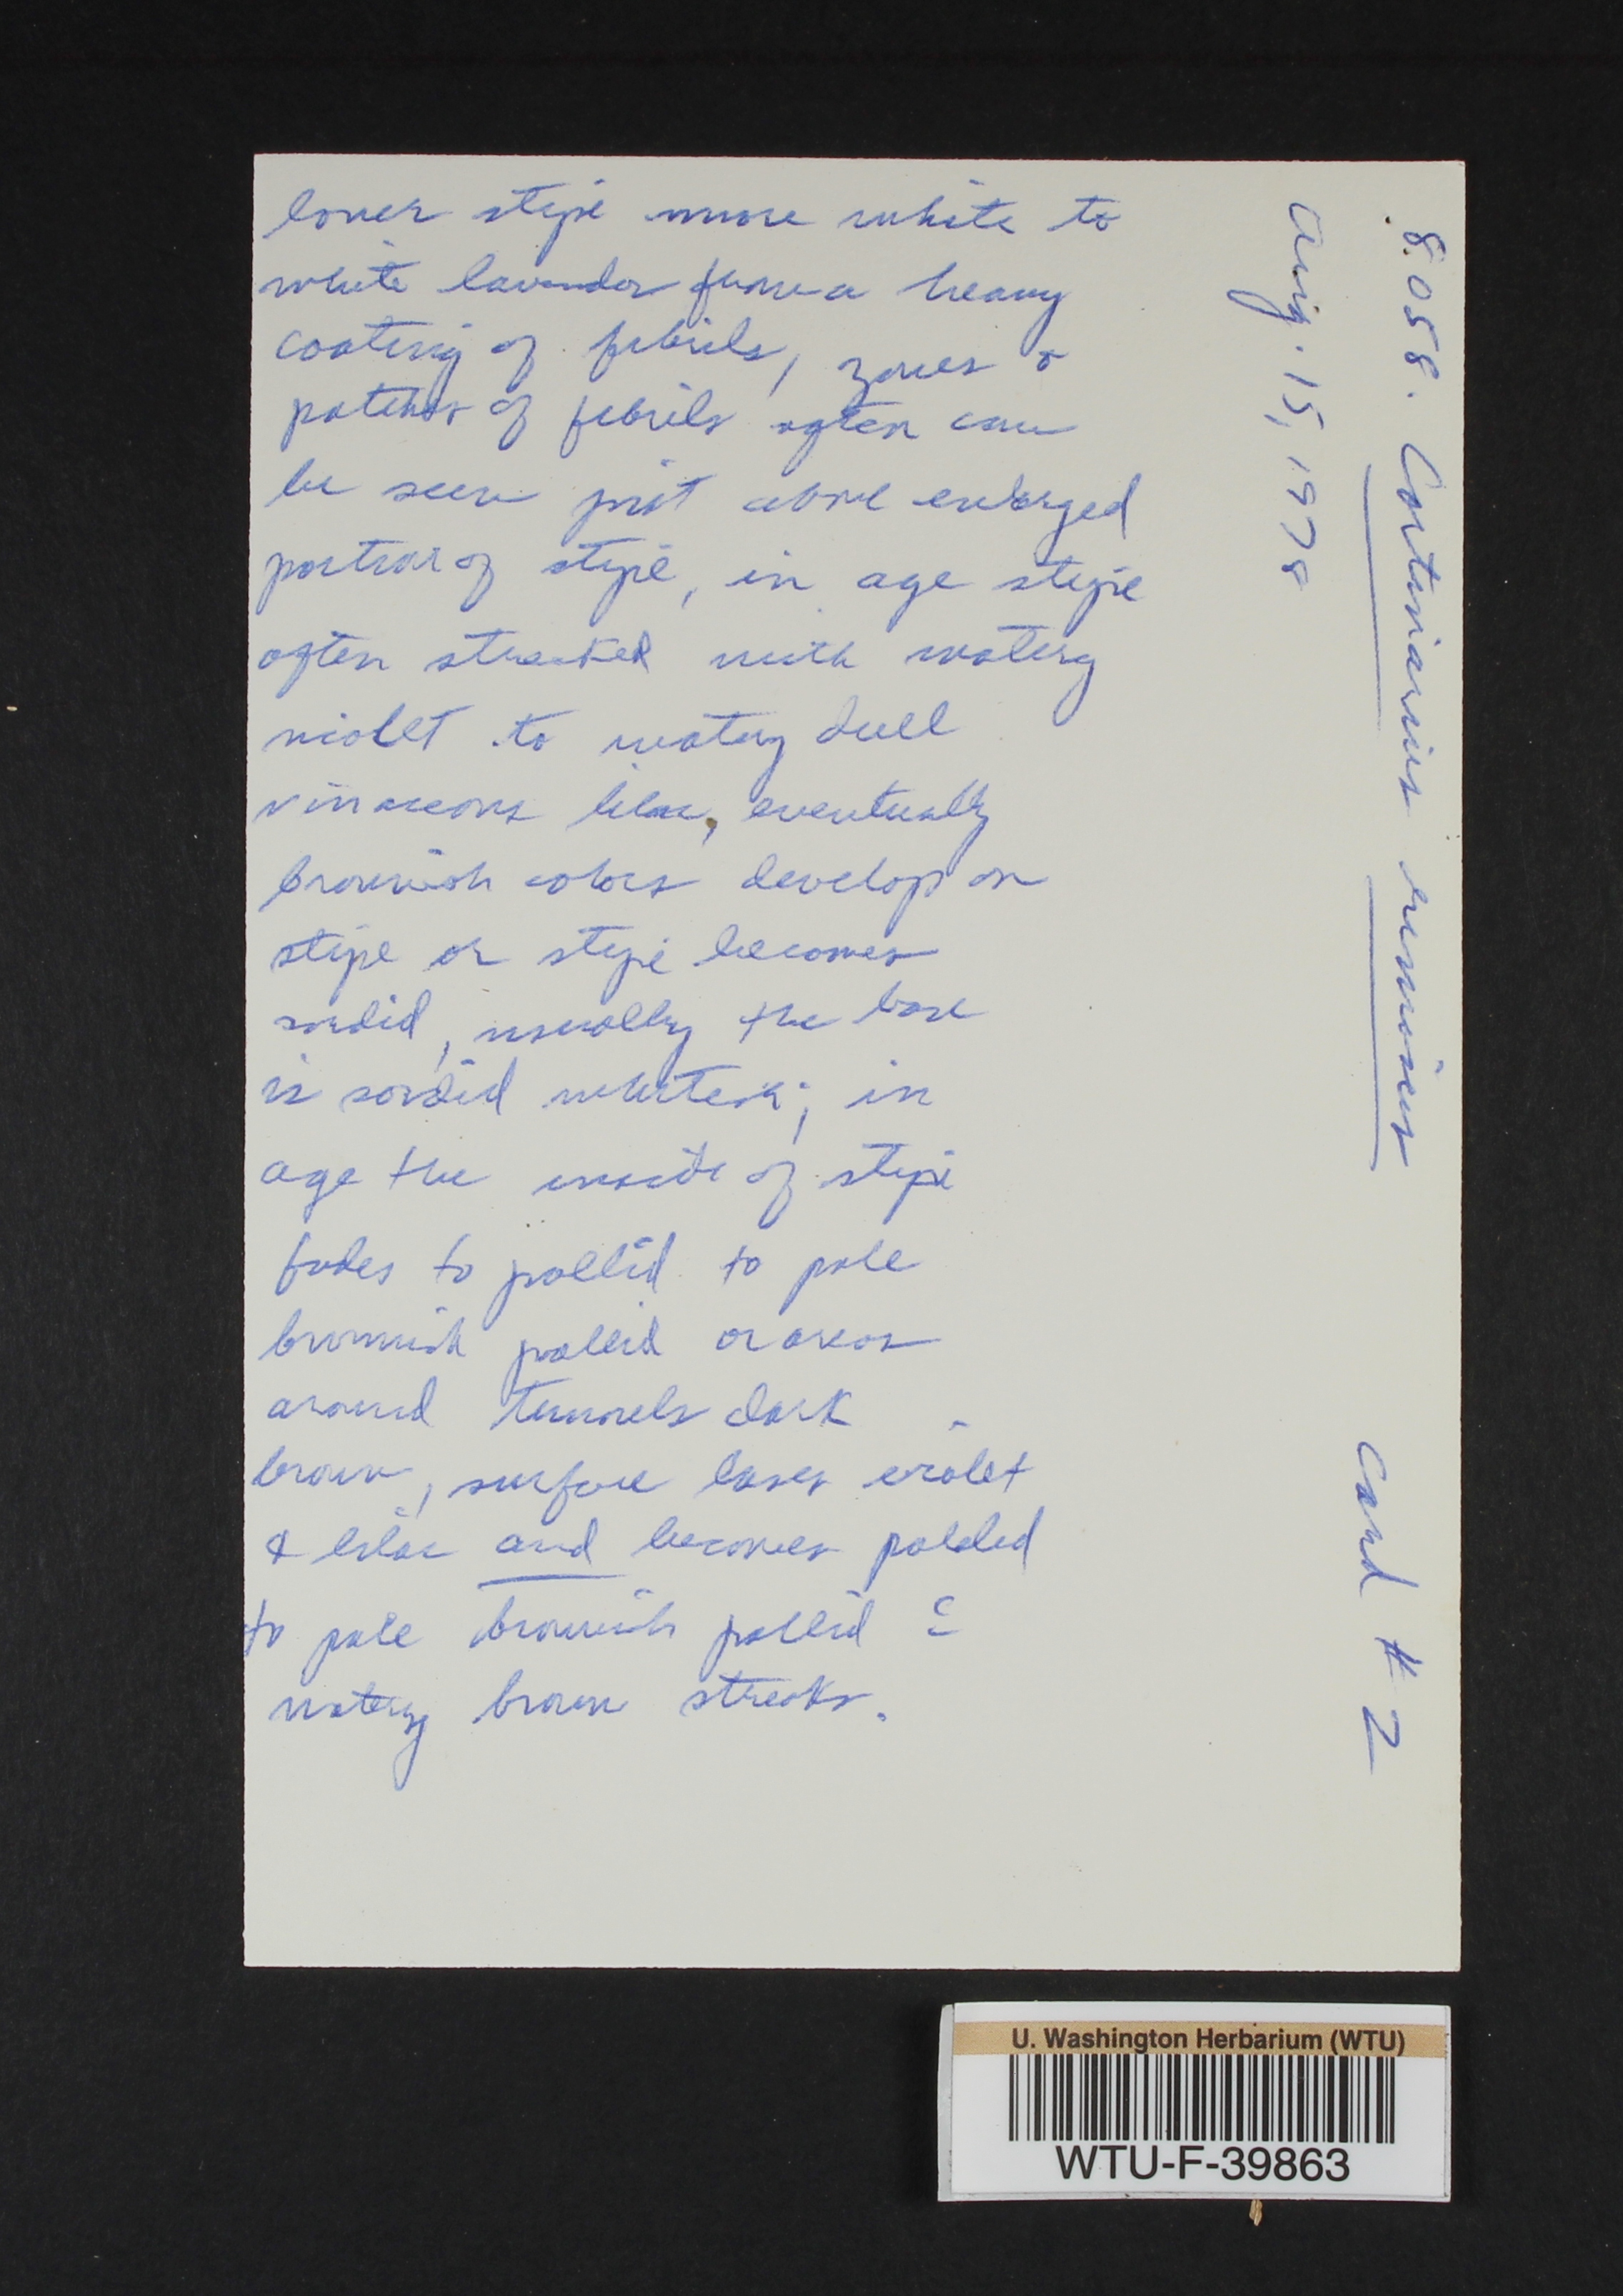 8058. Cortinarius evernius Card # 2
Aug. 15, 1978
lower stipe more white to
white lavender from a heavy
coating of fibrils, zones &
patches of fibrils often can
be seen just above enlarged
portion of stipe, in age stipe
often streaked with watery
violet to watery dull
vinaceous lilac, eventually
brownish colors develop on
stipe or stipe becomes
sordid, usually the base
is sordid whitish; in
age the inside of stipe
fades to pallid to pale
brownish pallid or areas
around tunnels dark
brown, surface loses violet
& lilac and becomes pallid
to pale brownish pallid c̄
watery brown streaks.
U. Washington Herbarium (WTU)
WTU-F-39863